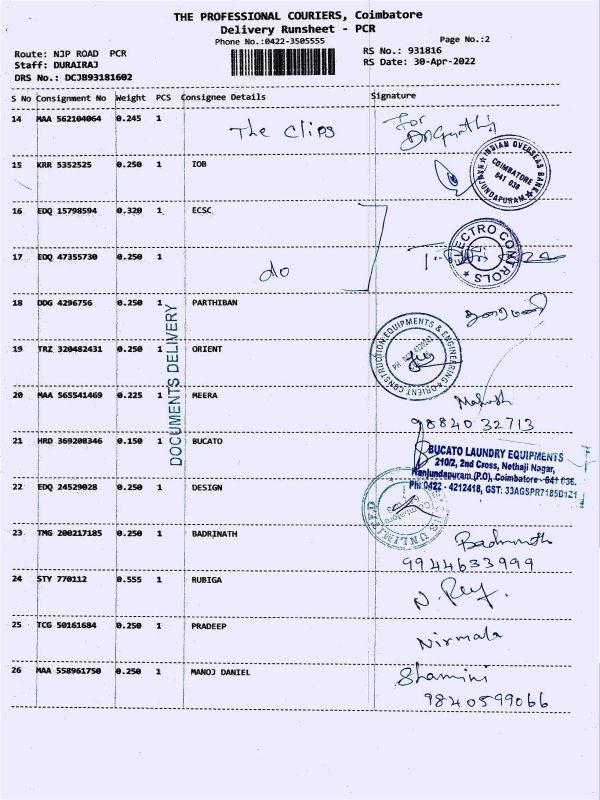 THE PROFESSIONAL COURIERS, Coimbatore
Delivery Runsheet - PCR
Phone No.:0422-3505555
Page No.:2
Route: NJP ROAD PCR
RS No.: 931816
Staff: DURAIRAJ
RS Date: 30-Apr-2022
DRS No.: DCJB93181602
S No Consignment No Weight PCS Consignee Details Signature
14 MAA 562104064 0.245 1 The Clips For
15 KRR 5352525 0.250 1 IOB
INDIAN OVERSEAS BANK
COIMBATORE
641 036
NANJUNDAPURAM
16 EDQ 15798594 0.320 1 ECSC
17 EDQ 47355730 0.250 1 do
ELECTRO CONTROLS
18 DDG 4296756 0.250 1 PARTHIBAN
DOCUMENTS DELIVERY
19 TRZ 320482431 0.250 1 ORIENT
ORIENT CONSTRUCTION EQUIPMENTS & ENGINEERING
20 MAA 565541469 0.225 1 MEERA Mahesh
98840 32713
21 HRD 369208346 0.150 1 BUCATO
BUCATO LAUNDRY EQUIPMENTS
210/2, 2nd Cross, Nethaji Nagar,
Nanjundapuram (P.O), Coimbatore - 641 036.
Ph: 0422 - 4212418, GST: 33AGSPR7185B1Z1
22 EDQ 24529028 0.250 1 DESIGN
UNLIMITED
23 TMG 200217185 0.250 1 BADRINATH Badrinath
9944633999
24 STY 770112 0.555 1 RUBIGA
25 TCG 50161684 0.250 1 PRADEEP Nirmala
26 MAA 558961750 0.250 1 MANOJ DANIEL Shamini
9840599066